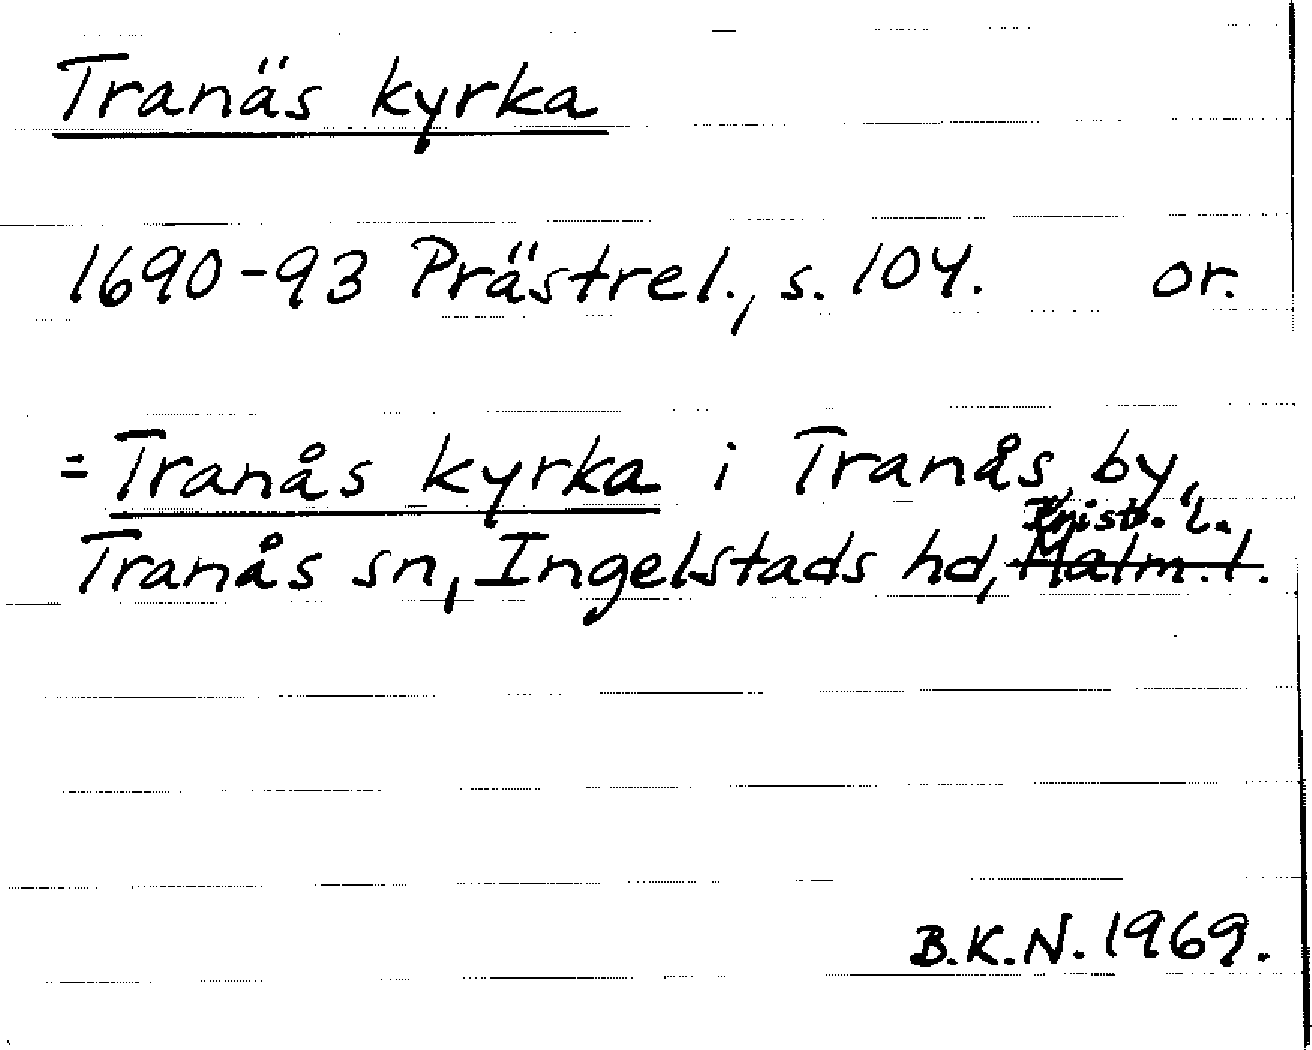 Tranäs kyrka
1690-93 Prästrel., s. 104. or.
= Tranås kyrka i Tranås by,
Krist. l.
Tranås sn, Ingelstads hd, Malm. l.
B.K.N. 1969.